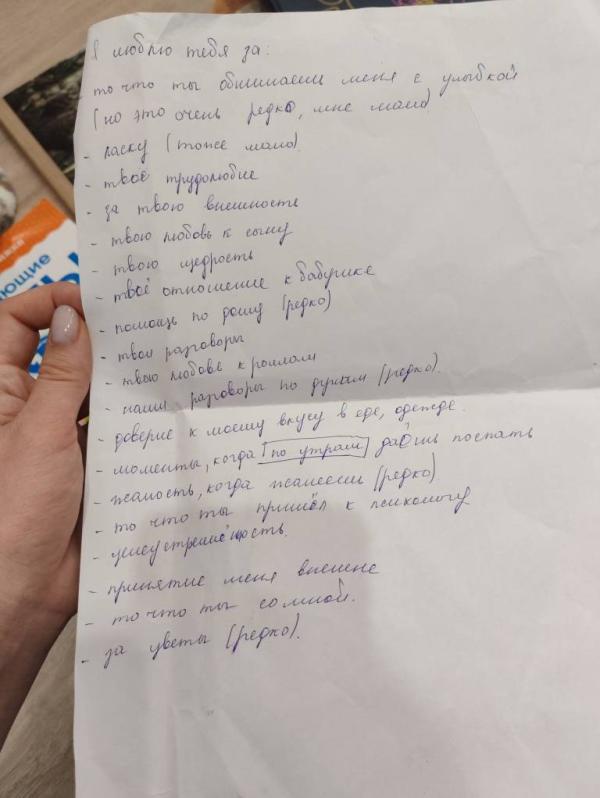 Я люблю тебя за:
- то что ты обнимаешь меня с улыбкой
(но это очень редко, мне мало)
- ласку (тоже мало).
- твоё трудолюбие
- за твою внешность
- твою любовь к сыну
- твою щедрость
- твоё отношение к бабушке
- помощь по дому (редко)
- твои разговоры
- твою любовь к роллам
- наши разговоры по душам (редко).
- доверие к моему вкусу в еде, одежде.
- моменты, когда по утрам даёшь поспать
- жалость, когда жалеешь (редко)
- то что ты пришёл к психологу
- целеустремлённость.
- принятие меня внешне
- то что ты со мной.
- за цветы (редко).
ющие